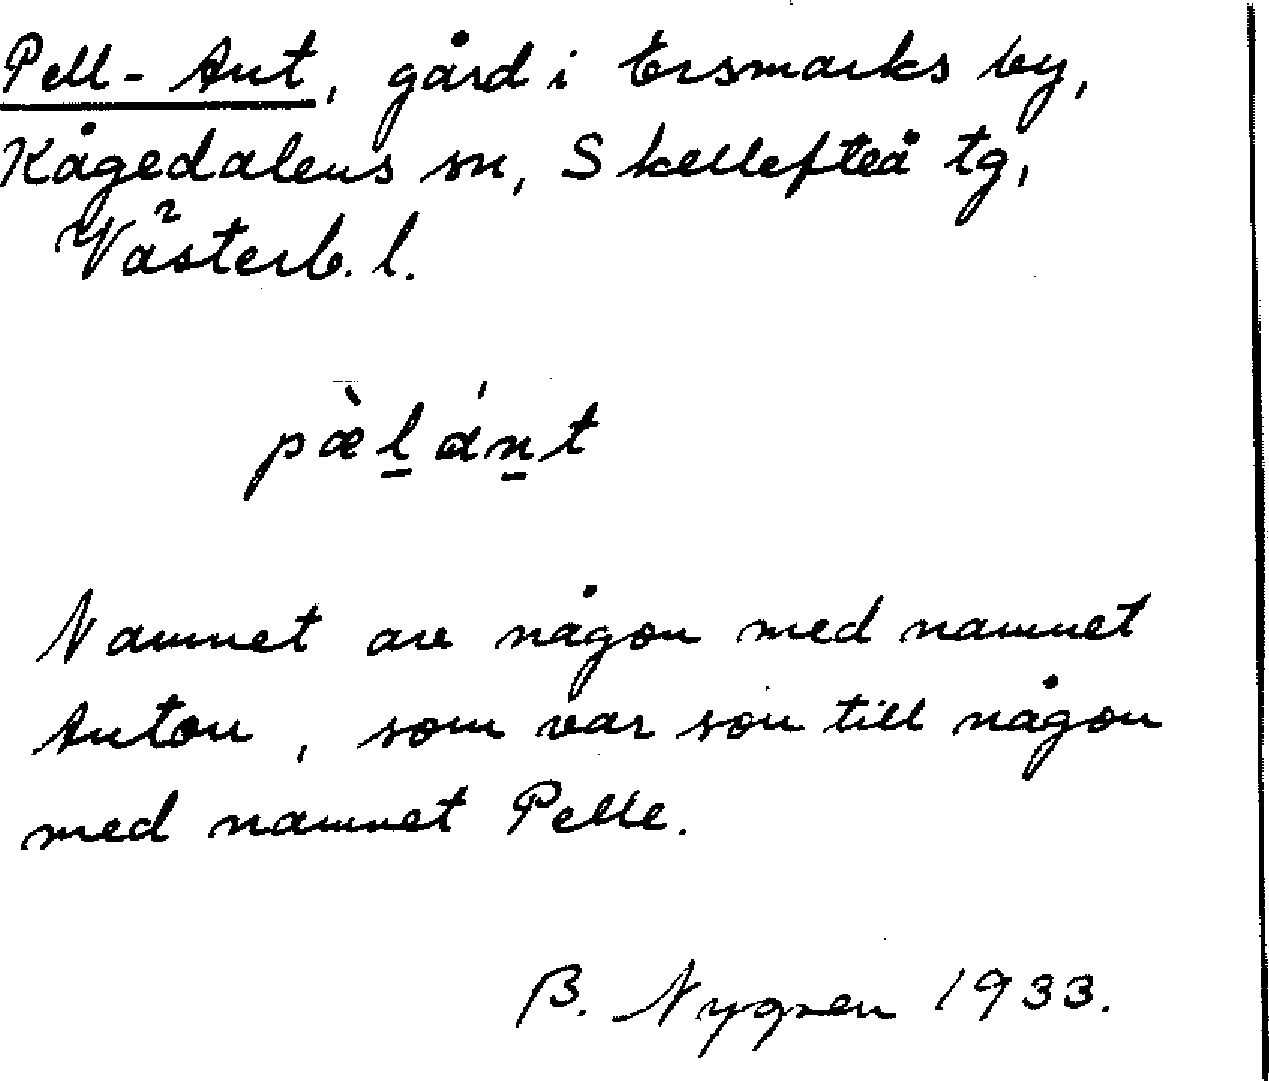 Pell-Ant, gård i Ersmarks by,
Kågedalens sn, Skellefteå tg,
Västerb. l.
pæ̀l̠ án̠t
Namnet ave någon med namnet
Anton, som var son till någon
med namnet Pelle.
B. Nygren 1933.